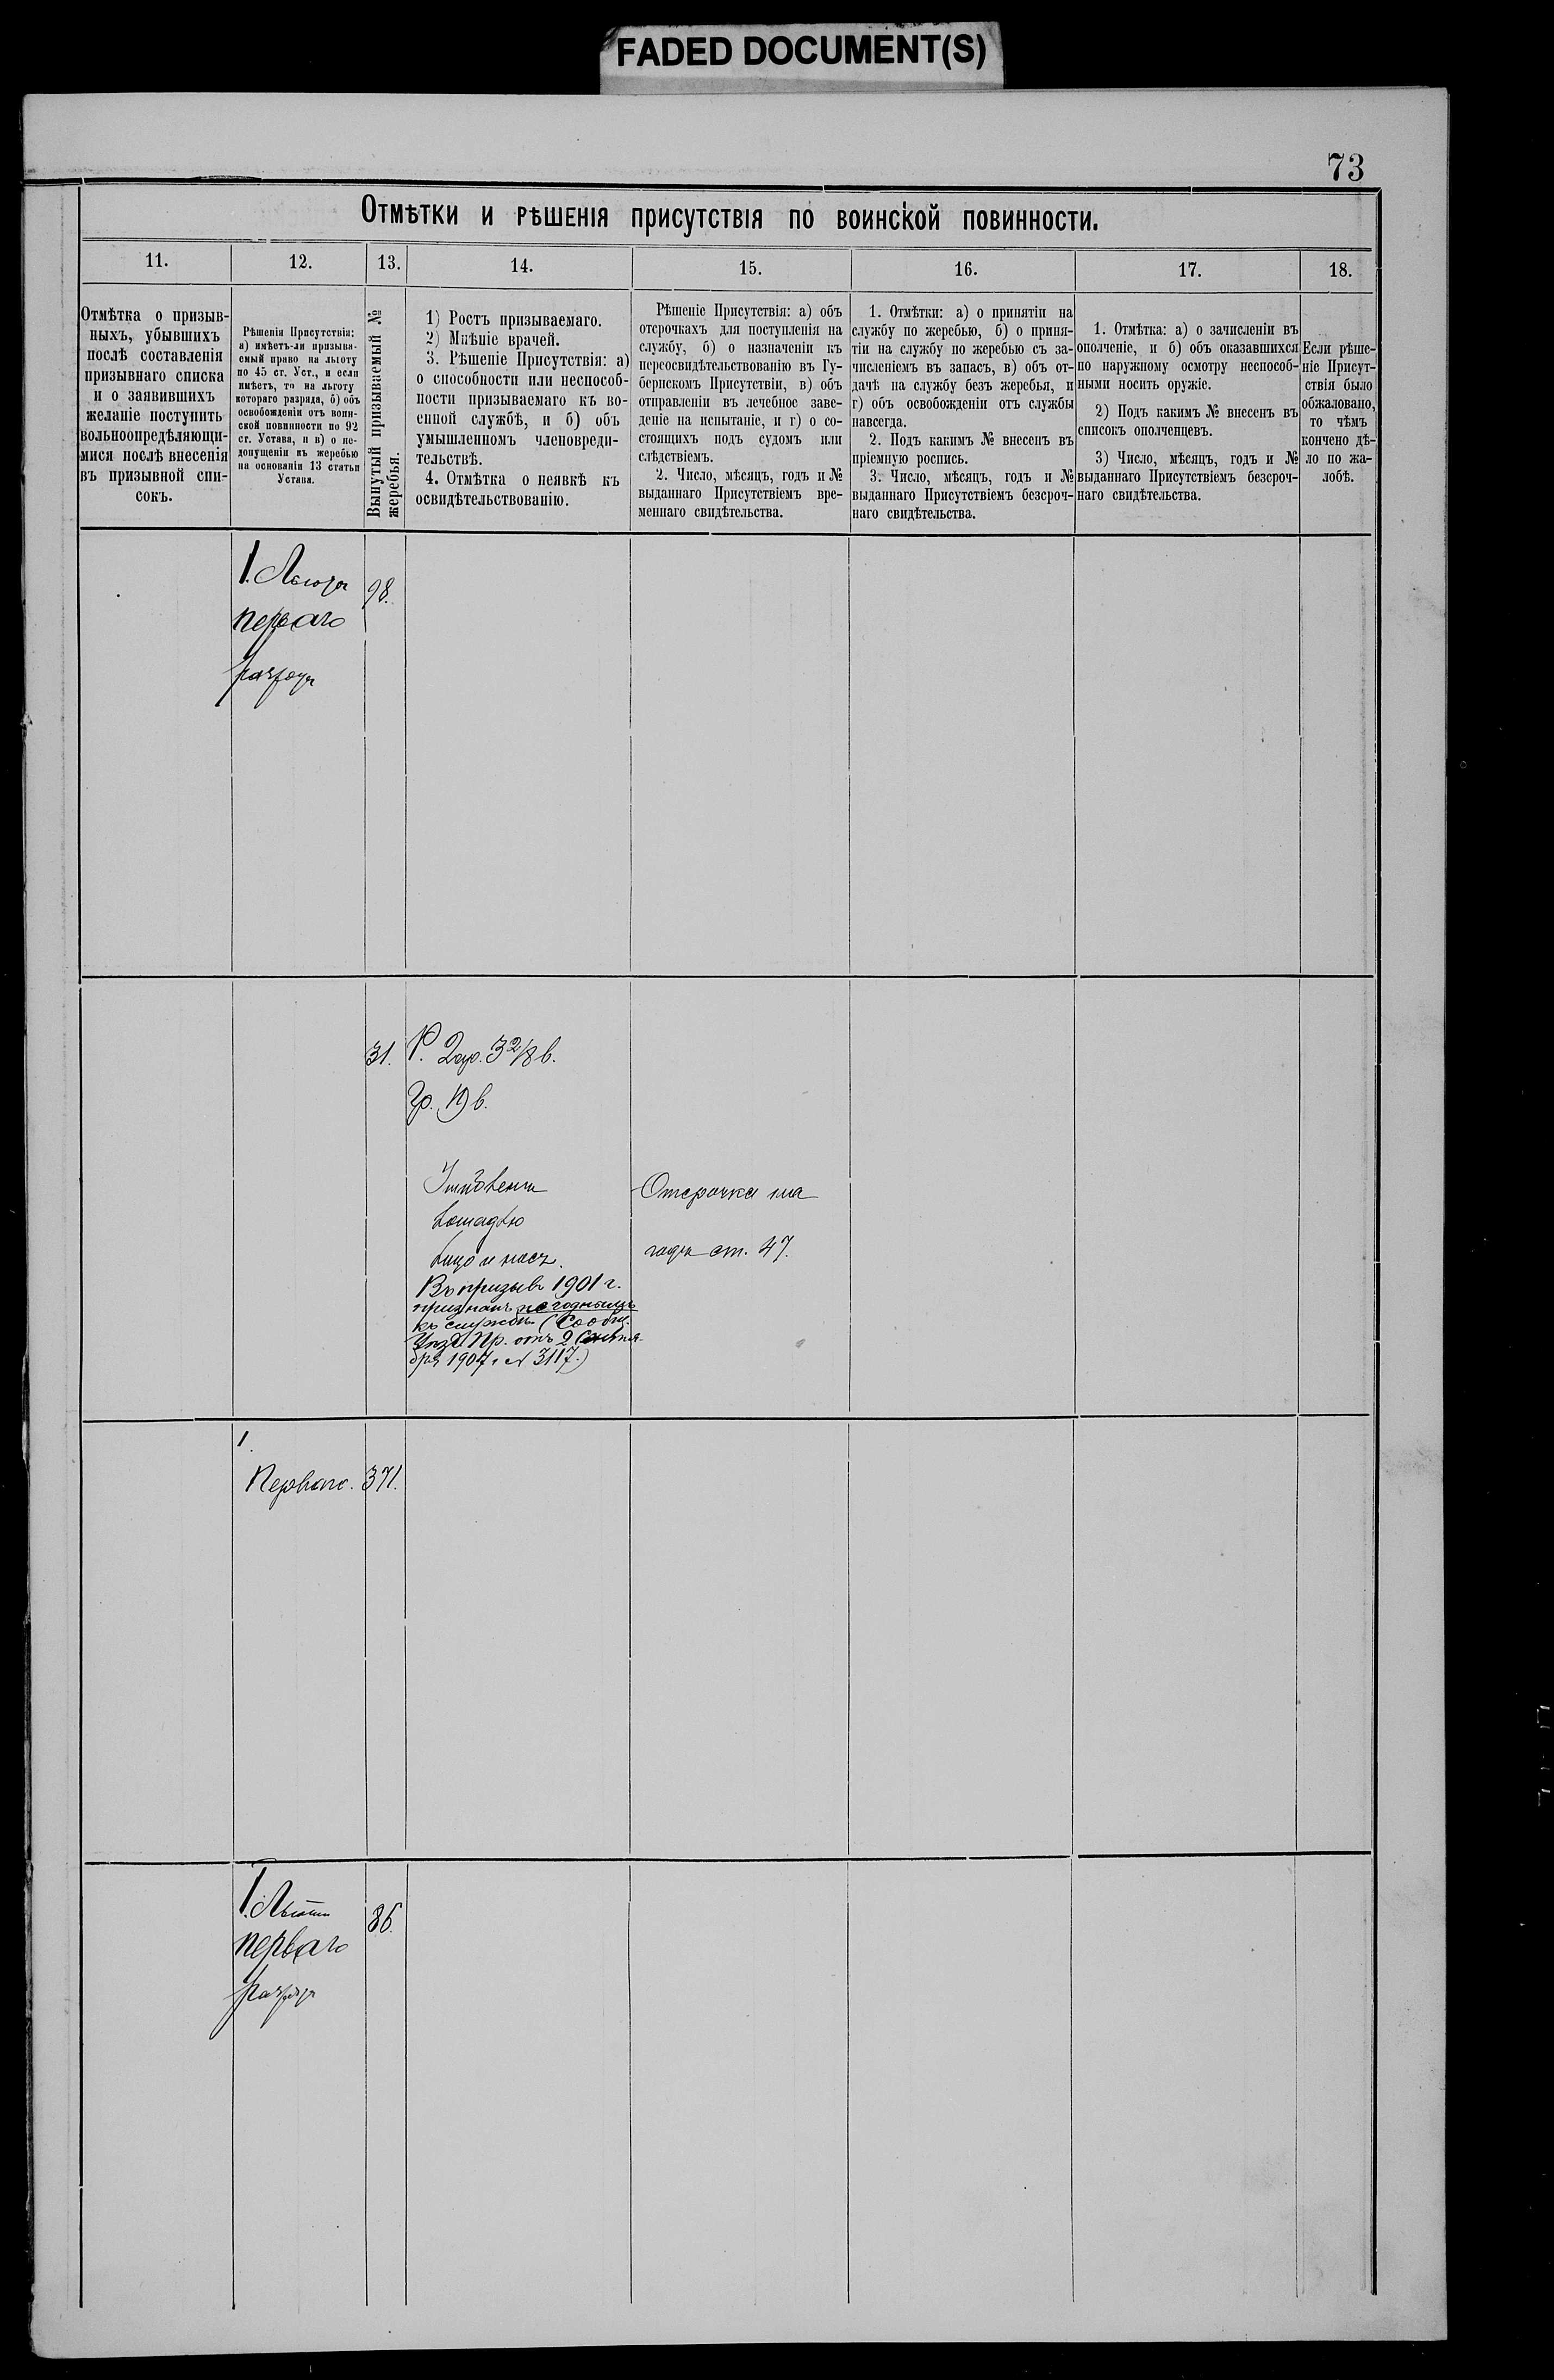 FADED DOCUMENT(S)
73
Отмѣтки и рѣшенія присутствія по воинской повинности.
11.
12.
13.
14.
15.
16.
17.
18.
Отмѣтка о призыв-
ныхъ, убывшихъ
послѣ составленія
призывнаго списка
и о заявившихъ
желаніе поступить
вольноопредѣляющи-
мися послѣ внесенія
въ призывной спи-
сокъ.
Рѣшенія Присутствія:
а) имѣетъ-ли призыва-
емый право на льготу
по 45 ст. Уст., и если
имѣетъ, то на льготу
котораго разряда, б) объ
освобожденіи отъ воин-
ской повинности по 92
ст. Устава, и в) о не-
допущеніи къ жеребью
на основаніи 13 статьи
Устава.
Вынутый призываемый №
жеребья.
1) Ростъ призываемаго.
2) Мнѣніе врачей.
3. Рѣшеніе Присутствія: а)
о способности или неспособ-
ности призываемаго къ во-
енной службѣ, и б) объ
умышленномъ членовреди-
тельствѣ.
4. Отмѣтка о неявкѣ къ
освидѣтельствованію.
Рѣшеніе Присутствія: а) объ
отсрочкахъ для поступленія на
службу, б) о назначеніи къ
переосвидѣтельствованію въ Гу-
бернскомъ Присутствіи, в) объ
отправленіи въ лечебное заве-
деніе на испытаніе, и г) о со-
стоящихъ подъ судомъ или
слѣдствіемъ.
2. Число, мѣсяцъ, годъ и №
выданнаго Присутствіемъ вре-
меннаго свидѣтельства.
1. Отмѣтки: а) о принятіи на
службу по жеребью, б) о приня-
тіи на службу по жеребью съ за-
численіемъ въ запасъ, в) объ от-
дачѣ на службу безъ жеребья, и
г) объ освобожденіи отъ службы
навсегда.
2. Подъ какимъ № внесенъ въ
пріемную роспись.
3. Число, мѣсяцъ, годъ и №
выданнаго Присутствіемъ безсроч-
наго свидѣтельства.
1. Отмѣтка: а) о зачисленіи въ
ополченіе, и б) объ оказавшихся
по наружному осмотру неспособ-
ными носить оружіе.
2) Подъ какимъ № внесенъ въ
списокъ ополченцевъ.
3) Число, мѣсяцъ, годъ и №
выданнаго Присутствіемъ безсроч-
наго свидѣтельства.
Если рѣше-
ніе Присут-
ствія было
обжаловано,
то чѣмъ
кончено дѣ-
ло по жа-
лобѣ.
1. Льгота
перваго
разряда
98.
31.
Р. 2ар. 3 2/8 в.
Гр. 19 в.
лошадью
лицо и носъ.
Въ призывъ 1901 г.
признанъ негоднымъ
къ службѣ (Сообщ.
Уѣзд. Пр. отъ 2 Сентя-
бря 1907 г № 3117.)
Отсрочка на
годъ ст. 47.
1
Перваго.
371.
1. Льготы
перваго
разряда
86.